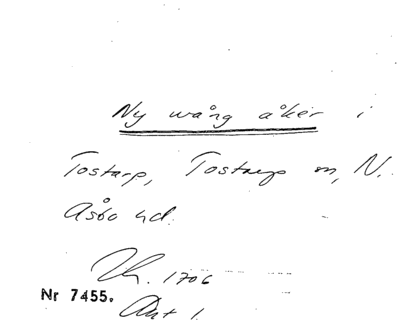 Ny wång åker i
Tostarp, Tostarp sn, N.
Åsbo hd.
1706
Nr 7455.
Akt 1.